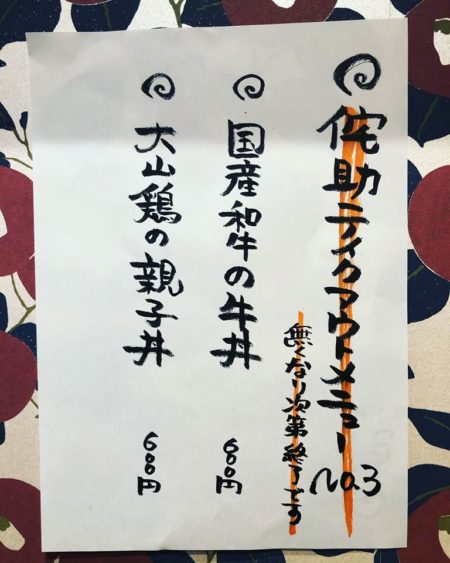 侘助テイクアウトメニュー No.3
無くなり次第終了です
国産和牛の牛丼 600円
大山鶏の親子丼 600円